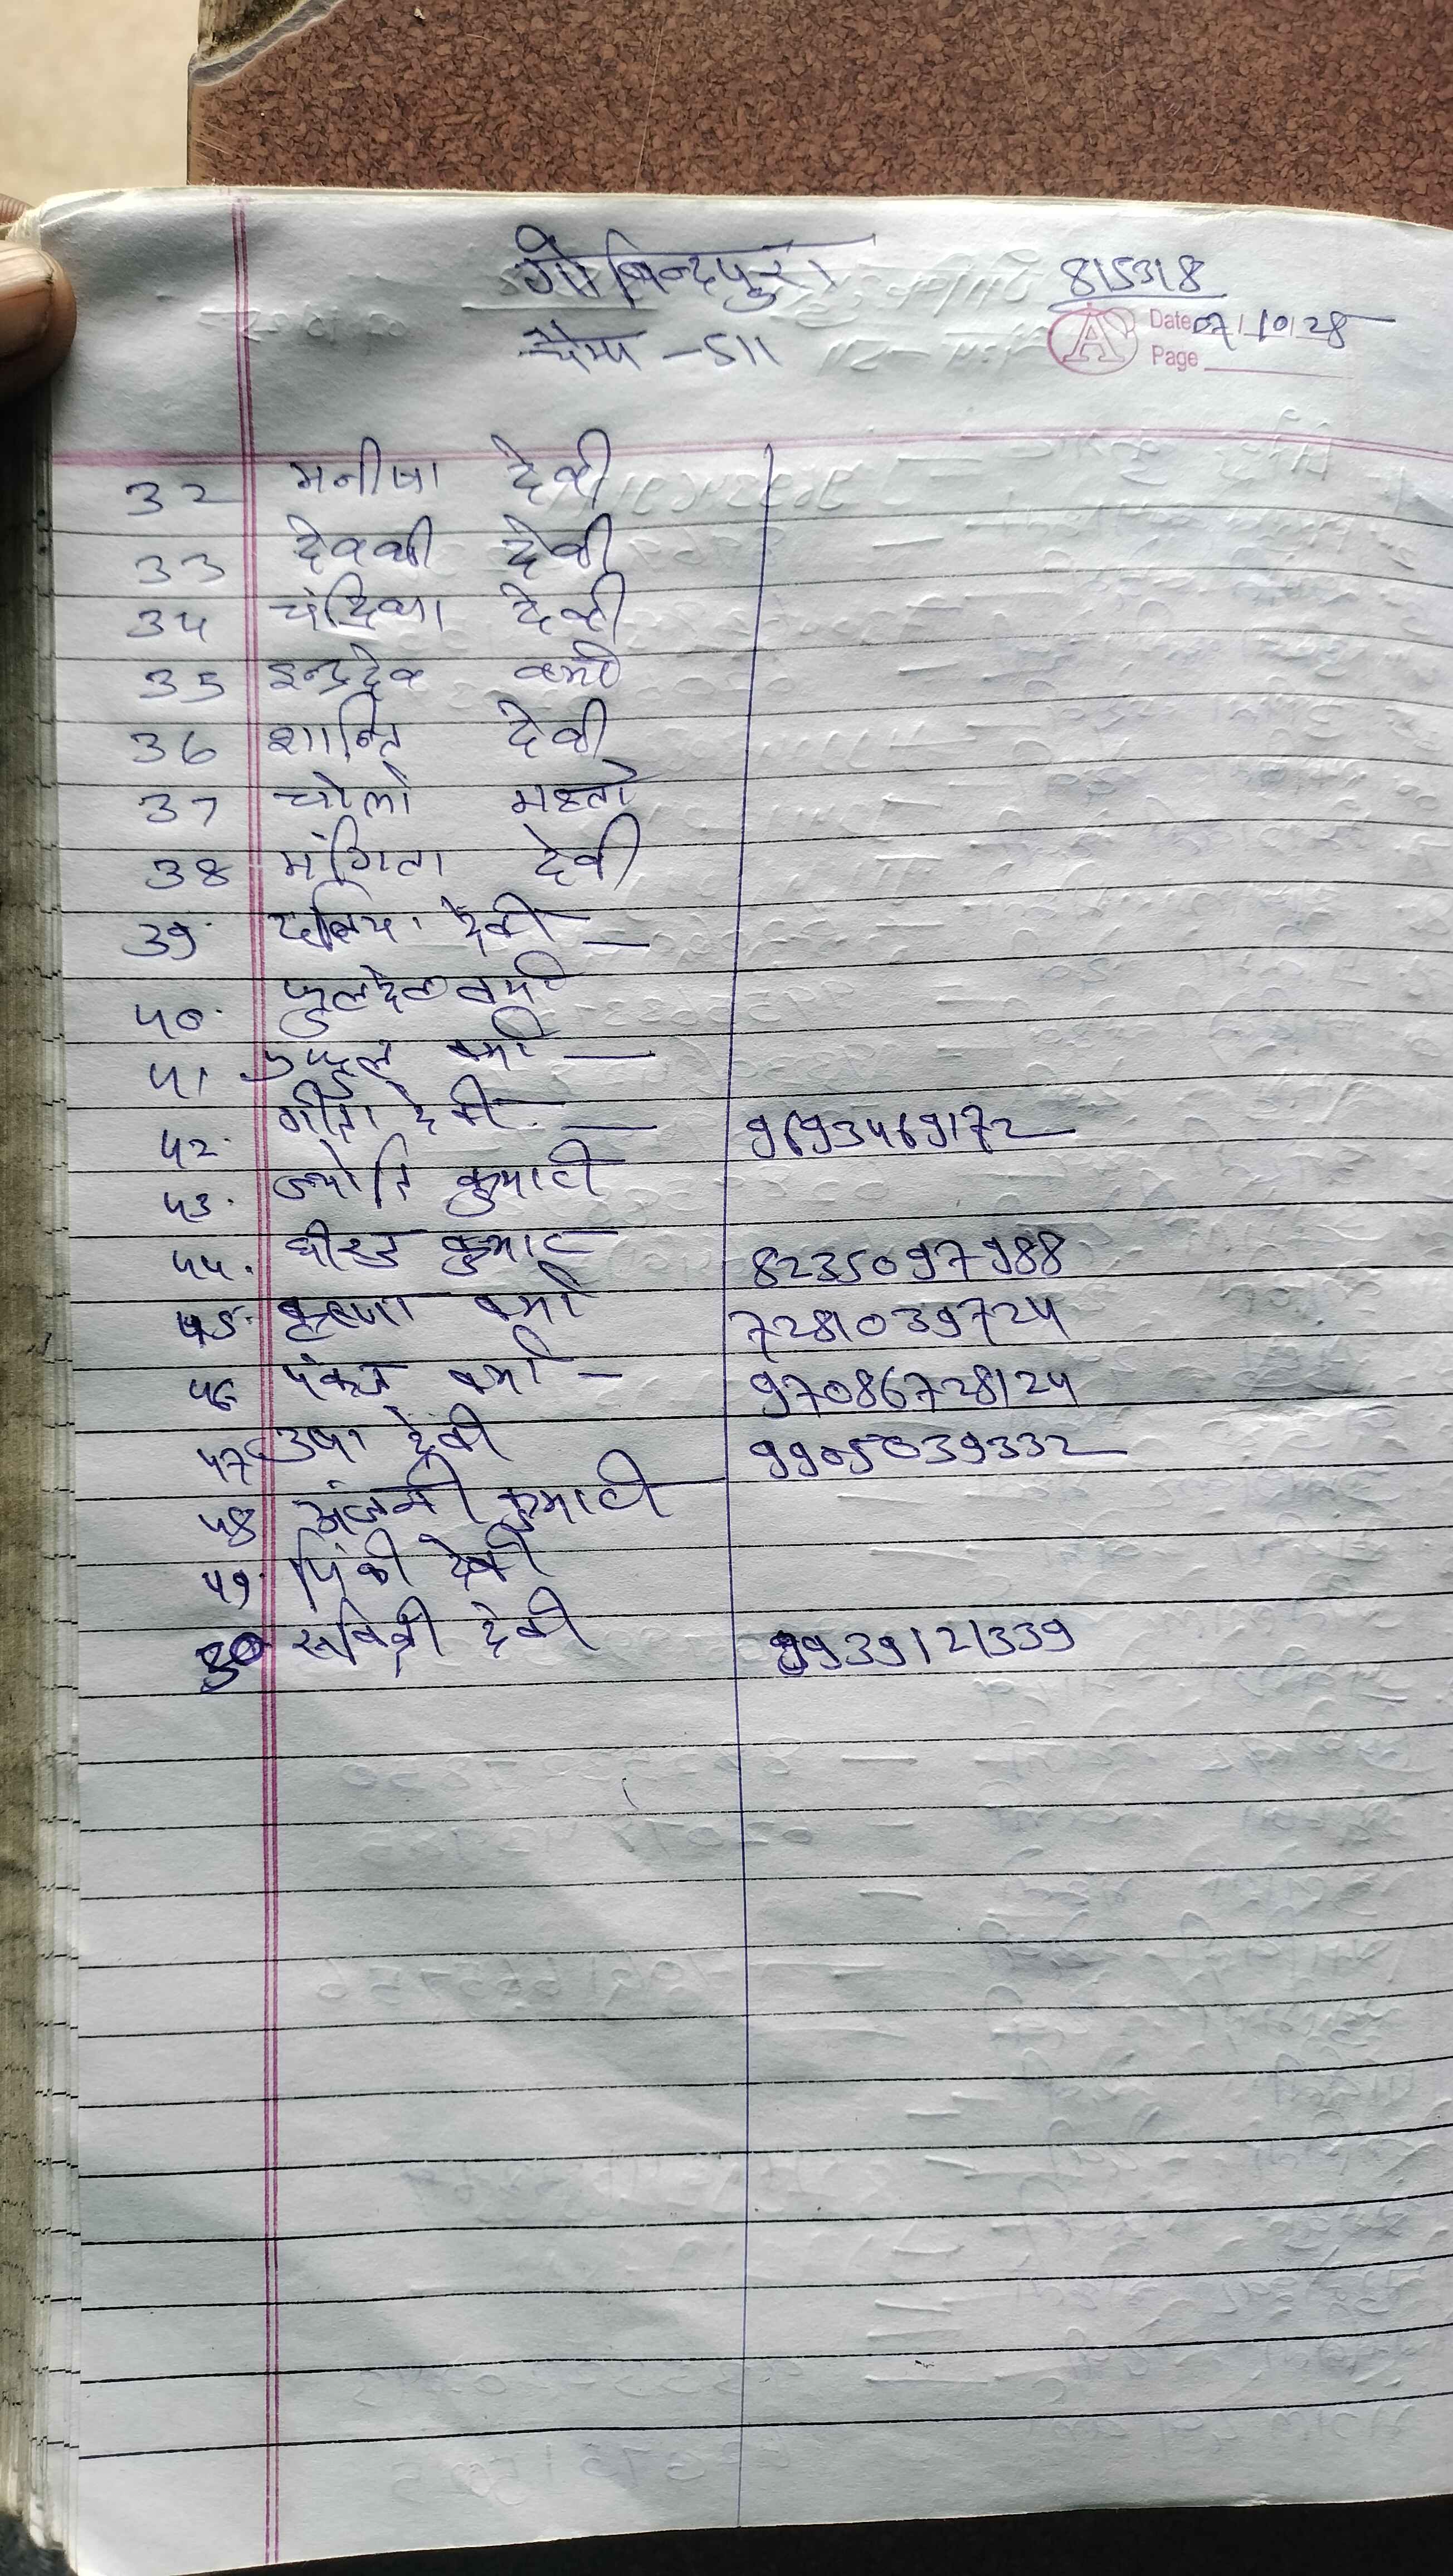 गोबिन्दपुर।
815318
चैम्प - 511
Date 07/10/28
Page
32 मनीषा देवी
33 देवकी देवी
34 चंद्रिका देवी
35 इन्द्रदेव वर्मा
36 शान्ति देवी
37 चोलो महतो
38 मंगिता देवी
39. देवी —
40. फुलदेव वर्मा
41 वर्मा —
42. गीता देवी — 9693469172
43. ज्योति कुमारी
44. धीरज कुमार 8235097988
45. कृष्णा वर्मा 7281039724
46 पंकज वर्मा — 97086728124
47 उषा देवी 9905039332
48 अंजली कुमारी
49. पिंकी देवी
50 सवित्री देवी 9939121339